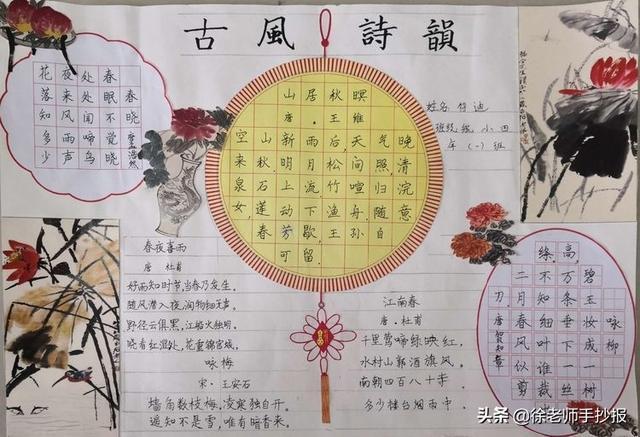 古風詩韻
春晓
孟浩然
春眠不觉晓
处处闻啼鸟
夜来风雨声
花落知多少
山居秋暝
唐·王维
空山新雨后天气晚
来秋明月松间照清
泉石上流竹喧归浣
女莲动下渔舟随意
春芳歇王孙自
可留
姓名 符迪
班级 小四
年(一)班
春夜喜雨
唐 杜甫
好雨知时节,当春乃发生。
随风潜入夜,润物细无声。
野径云俱黑,江船火独明。
晓看红湿处,花重锦官城。
咏梅
宋·王安石
墙角数枝梅,凌寒独自开。
遥知不是雪,唯有暗香来。
江南春
唐·杜甫
千里莺啼绿映红,
水村山郭酒旗风。
南朝四百八十寺,
多少楼台烟雨中。
咏柳
唐 贺知章
绦高,
二不万碧
刀月知条玉
春细垂妆
风叶下成
似谁一一
剪裁丝树
头条 @徐老师手抄报